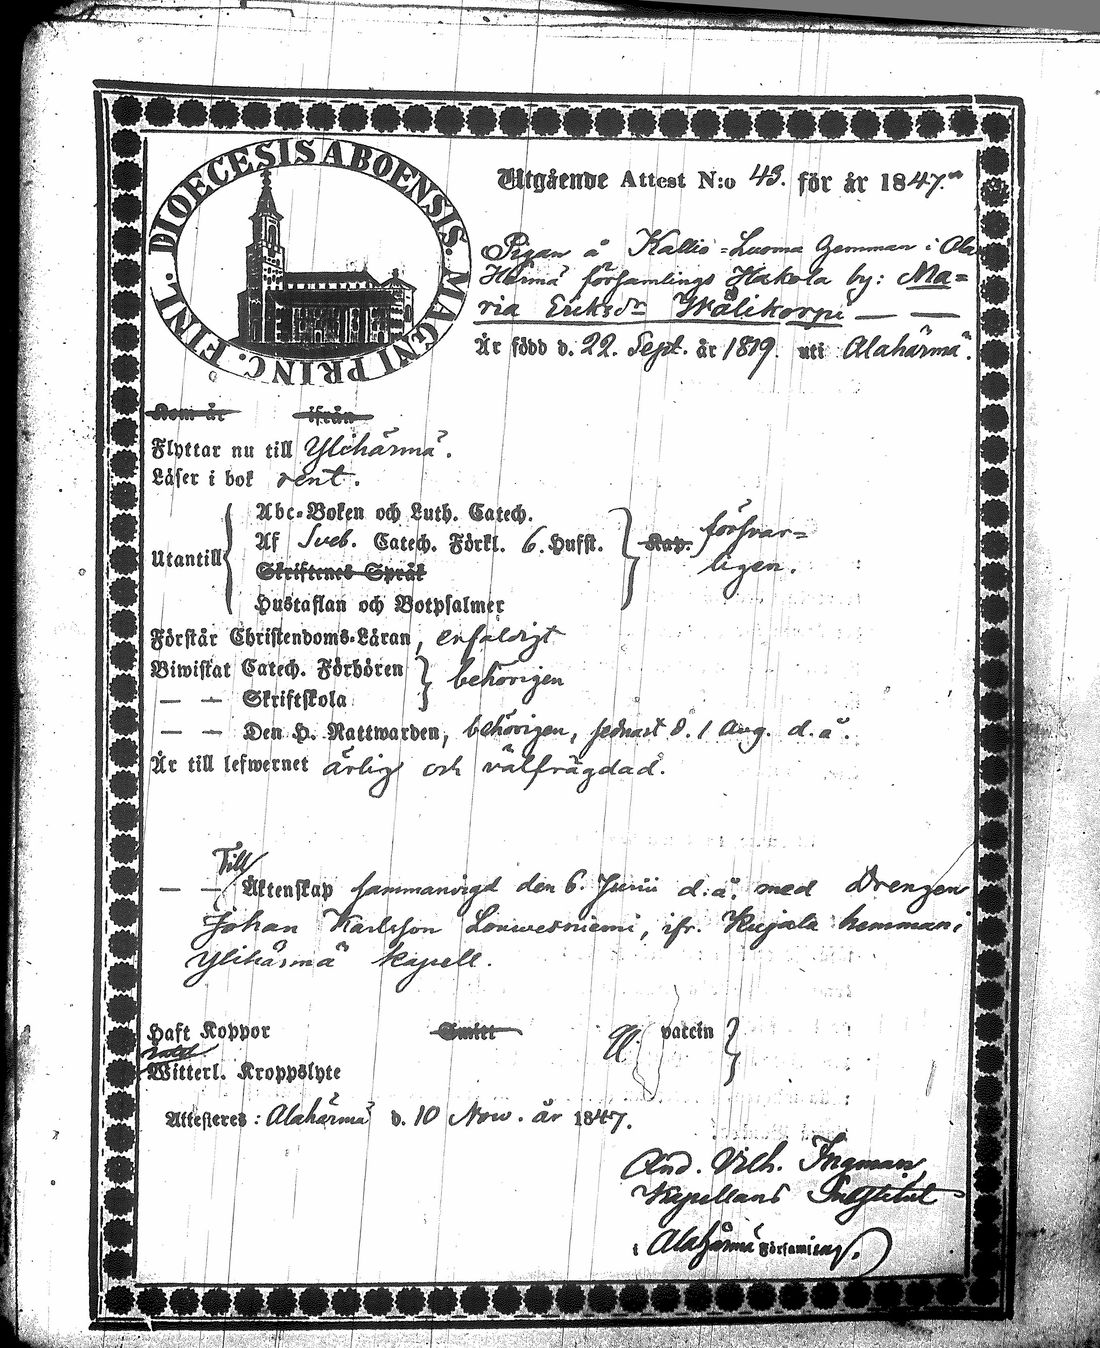 DIOECESIS ABOENSIS. MAGNI PRINC. FINL.
Utgående Attest N:o 43. för år 1847.
Pigan å Kallio=Luoma hemman i Ala
Härmä församlings Hakola by: Ma=
ria Eriksdr Wälikorpi — —
Är född d. 22. Sept. år 1819. uti Alahärmä.
Kom år ifrån
Flyttar nu till Ylihärmä.
Läser i bok rent.
Abc-Boken och Luth. Catech.
Utantill Af Sveb. Catech. Förkl. 6. Hufst. Kap. försvar=
ligen.
Skriftenes Språk
Hustaflan och Botpsalmer
Förstår Christendoms-Läran, enfaldigt
Biwistat Catech. Förhören behörigen
— — Skriftskola
— — Den H. Nattwarden, behörigen, sednast d. 1 Aug. d.å.
Är till lefwernet ärlig och välfrägdad.
Till
— — Äktenskap sammanvigd den 6. Junii d.å. med Drengen
Johan Karlsson Louwesniemi, ifr. Kujala hemman i
Ylihärmä kapell.
Haft Koppor Smitt vaccin
Witterl. Kroppslyte
Attesteres: Alahärmä d. 10 Now. år 1847.
And. Vilh. Ingman
Kapellans Substitut
i Alahärmä Församling.